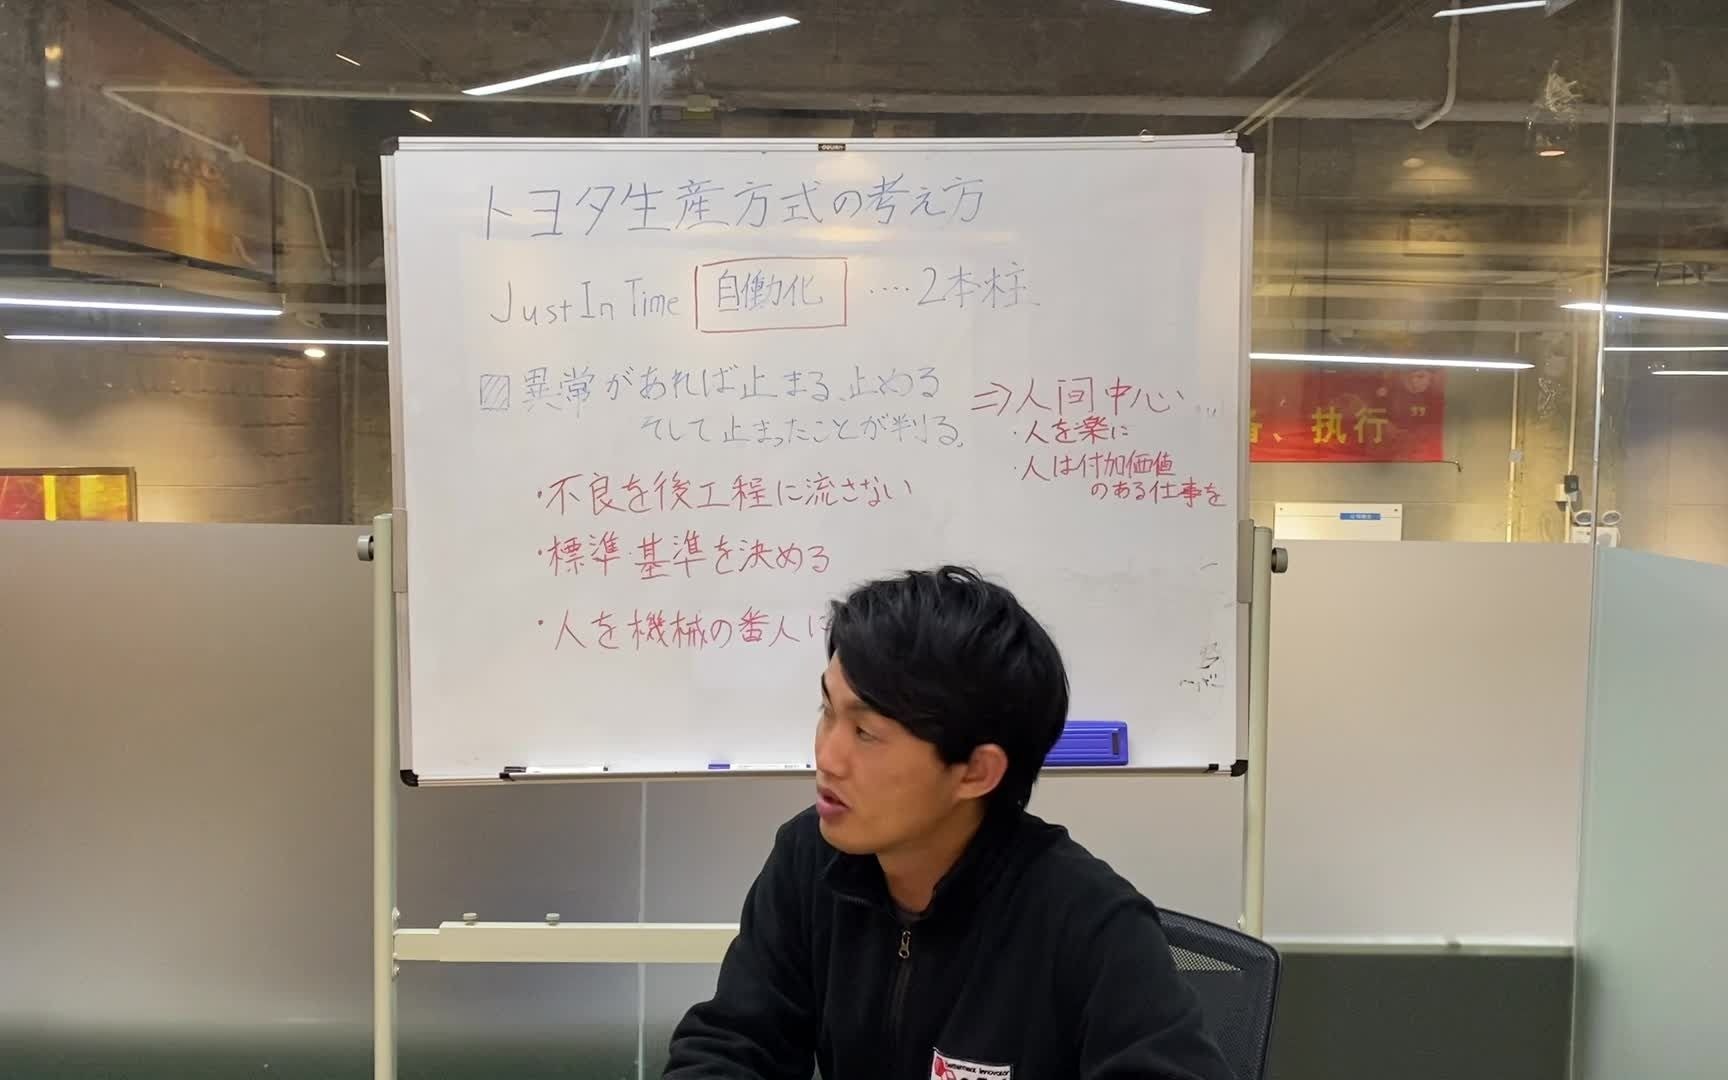 deli
トヨタ生産方式の考え方
Just In Time 自働化 ····· 2本柱
異常があれば止まる、止める
そして止まったことが判る。
・不良を後工程に流さない
・標準・基準を決める
・人を機械の番人に
⇒人間中心
・人を楽に
・人は付加価値
のある仕事を
、执行”